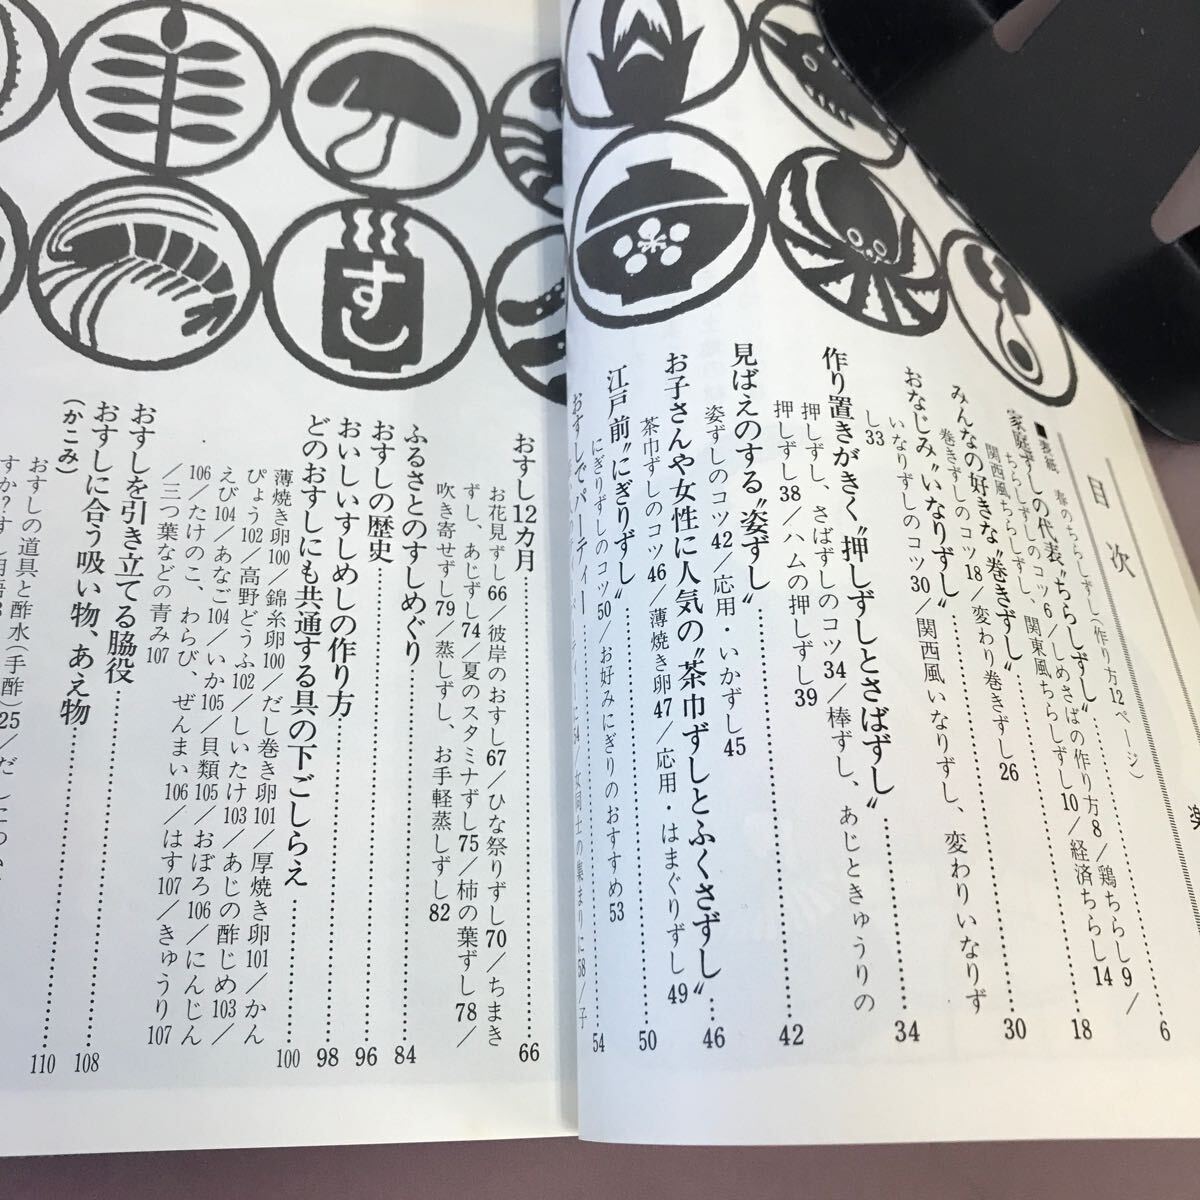 目次
■表紙　春のちらしずし(作り方12ページ)
家庭ずしの代表〝ちらしずし〟……6
ちらしずしのコツ6/しめさばの作り方8/鶏ちらし9/
関西風ちらしずし、関東風ちらしずし10/経済ちらし14
みんなの好きな〝巻きずし〟……18
巻きずしのコツ18/変わり巻きずし26
おなじみ〝いなりずし〟……30
いなりずしのコツ30/関西風いなりずし、変わりいなりず
し33
作り置きがきく〝押しずしとさばずし〟……34
押しずし、さばずしのコツ34/棒ずし、あじときゅうりの
押しずし38/ハムの押しずし39
見ばえのする〝姿ずし〟……42
姿ずしのコツ42/応用・いかずし45
お子さんや女性に人気の〝茶巾ずしとふくさずし〟……46
茶巾ずしのコツ46/薄焼き卵47/応用・はまぐりずし49
江戸前〝にぎりずし〟……50
にぎりずしのコツ50/お好みにぎりのおすすめ53
おすしでパーティー……54
女同士の集まりに58/子
おすし12カ月……66
お花見ずし66/彼岸のおすし67/ひな祭りずし70/ちまき
ずし、あじずし74/夏のスタミナずし75/柿の葉ずし78/
吹き寄せずし79/蒸しずし、お手軽蒸しずし82
ふるさとのすしめぐり……84
おすしの歴史……96
おいしいすしめしの作り方……98
どのおすしにも共通する具の下ごしらえ……100
薄焼き卵100/錦糸卵100/だし巻き卵101/厚焼き卵101/かん
ぴょう102/高野どうふ102/しいたけ103/あじの酢じめ103/
えび104/あなご104/いか105/貝類105/おぼろ106/にんじん
106/たけのこ、わらび、ぜんまい106/はす107/きゅうり107
/三つ葉などの青み107
おすしを引き立てる脇役……108
おすしに合う吸い物、あえ物……110
(かこみ)
おすしの道具と酢水(手酢)25/だしについ
すし